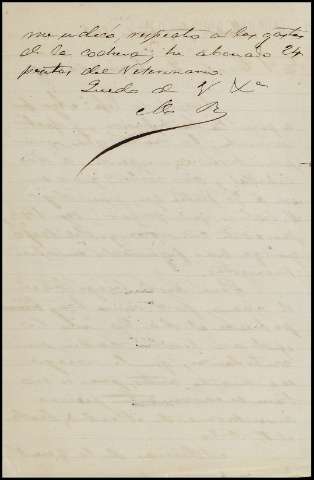 me indicó respecto a los gastos
de la cochera, he abonado 24
pesetas del Veterinario.
Quedo de V